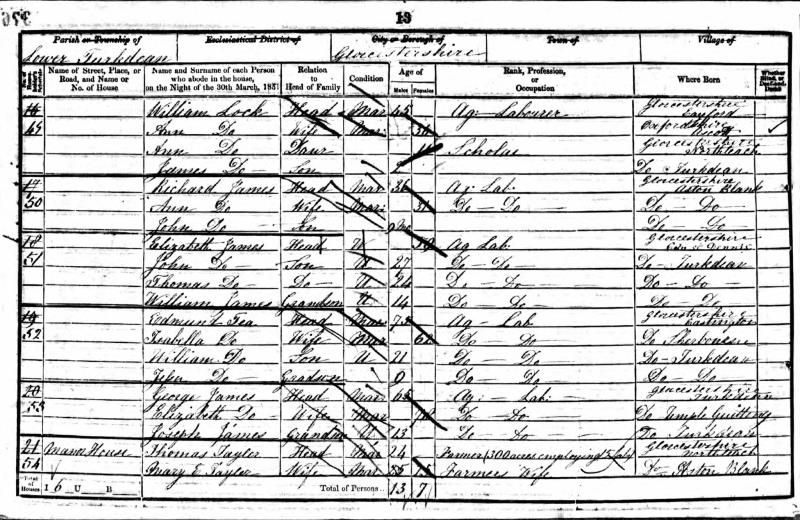 13
Parish or Township of Ecclesiastical District of City or Borough of Town of Village of
Lower Turkdean Gloucestershire
Name of Street, Place, or Road, and Name or No. of House
Name and Surname of each Person who abode in the house, on the Night of the 30th March, 1851
Relation to Head of Family
Condition
Age of
Males Females
Rank, Profession, or Occupation
Where Born
Whether Blind, or Deaf-and-Dumb
16 William Lock Head Mar 45 Ag. Labourer Gloucestershire
49 Ann Do Wife Mar Oxfordshire
Ann Do Daur Scholar Gloucestershire Northleach
James Do Son 2 Do Turkdean
17 Richard James Head Mar 36 Ag. Lab. Gloucestershire Aston Blank
50 Ann Do Wife Mar 31 Do Do Do Do
John Do Son Do Do
18 Elizabeth James Head W Ag. Lab. Gloucestershire
51 John Do Son U 27 Do Do Do Turkdean
Thomas Do Do U 24 Do Do Do Do
William James Grandson U 14 Do Do Do Do
19 Edmund Head Mar 75 Ag Lab Gloucestershire
52 Isabella Do Wife Mar Do Do Do Sherborne
William Do Son U 21 Do Do Do Turkdean
Do Grandson 9 Do Do Do Do
20 George James Head Mar 65 Ag. Lab. Gloucestershire Turkdean
53 Elizabeth Do Wife Mar Do Do Do Temple Guiting
Joseph James Grandson U 13 Do Do Do Turkdean
21 Manor House Thomas Tayler Head Mar 24 Farmer (300 acres employing Gloucestershire Northleach
54 Mary E Tayler Wife Mar Farmers Wife Do Aston Blank
Total of Houses 1 6 U B Total of Persons 13 7